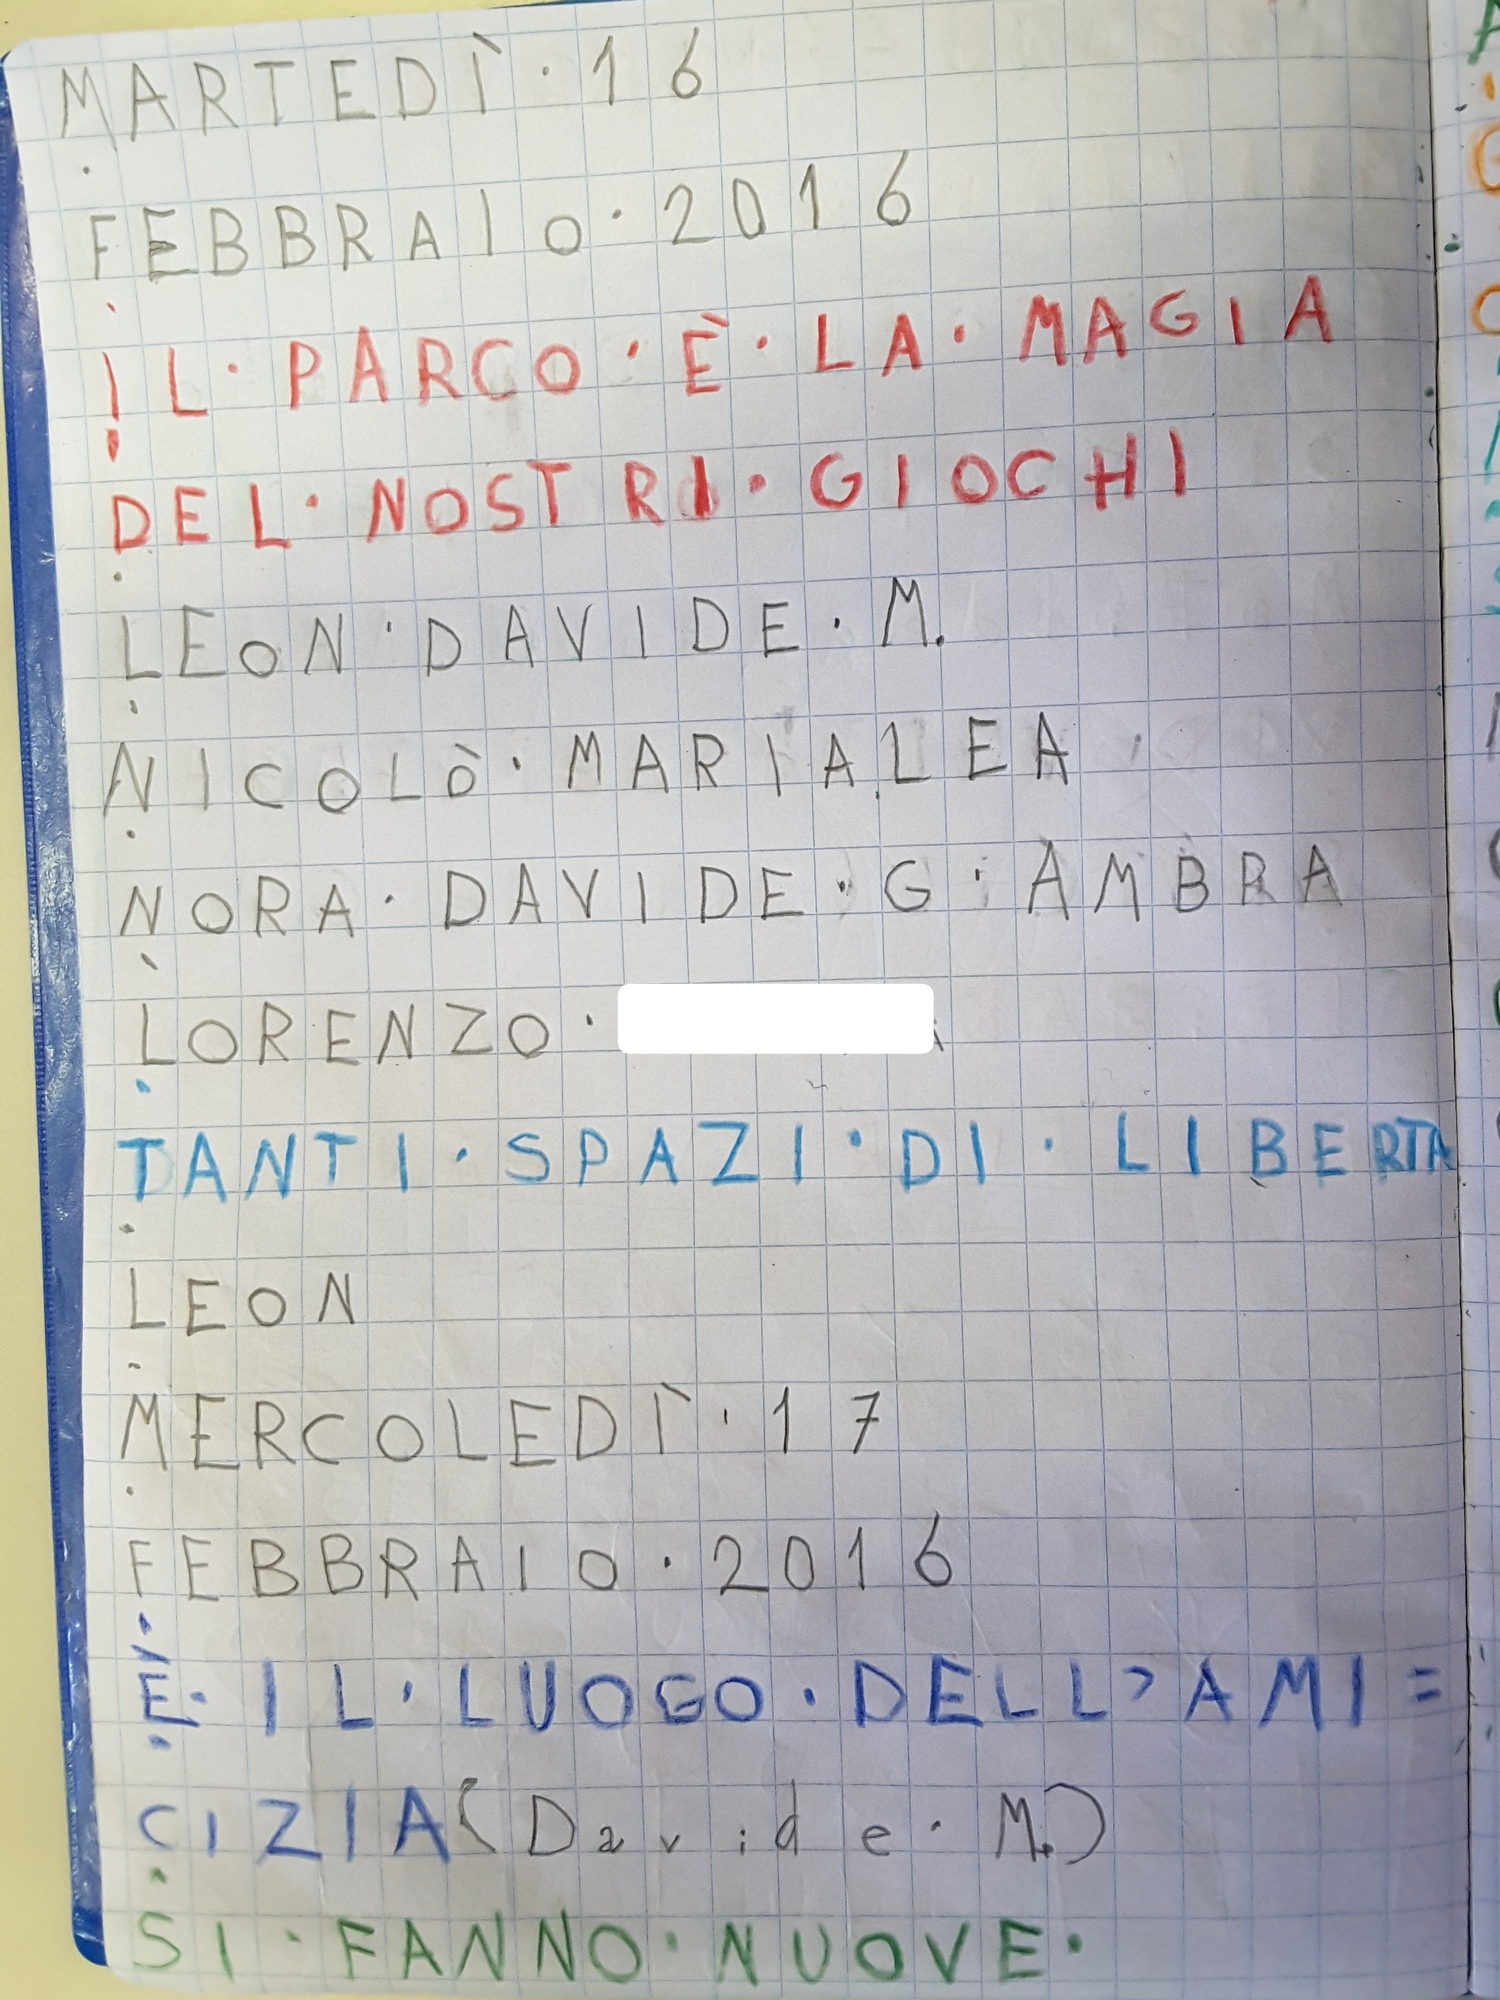 MARTEDÌ·16
FEBBRAIO·2016
IL·PARCO·È·LA·MAGIA
DEL·NOSTRI·GIOCHI
LEON·DAVIDE·M.
NICOLÒ·MARIALEA
NORA·DAVIDE·G·AMBRA
LORENZO·
TANTI·SPAZI·DI·LIBERTA
LEON
MERCOLEDÌ·17
FEBBRAIO·2016
È·IL·LUOGO·DELL'AMI=
CIZIA(Davide·M.)
SI·FANNO·NUOVE·